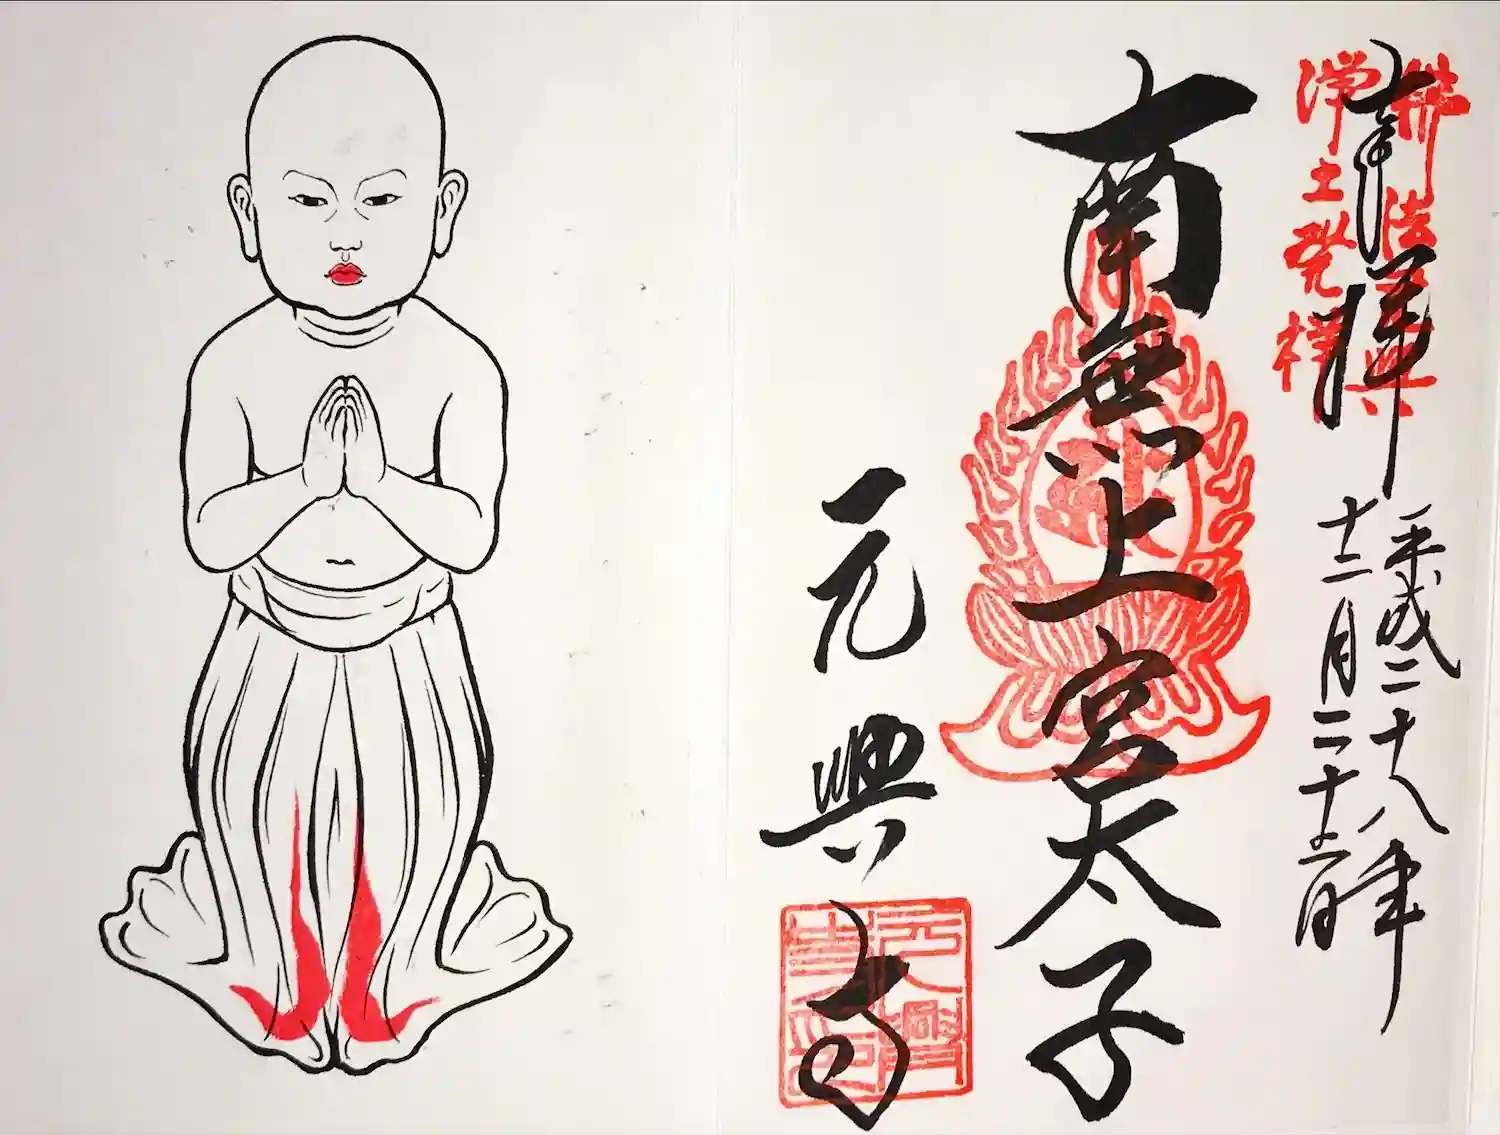 奉拝
佛法元興
浄土発祥
平成二十八年
十二月二十三日
南無上宮太子
元興寺